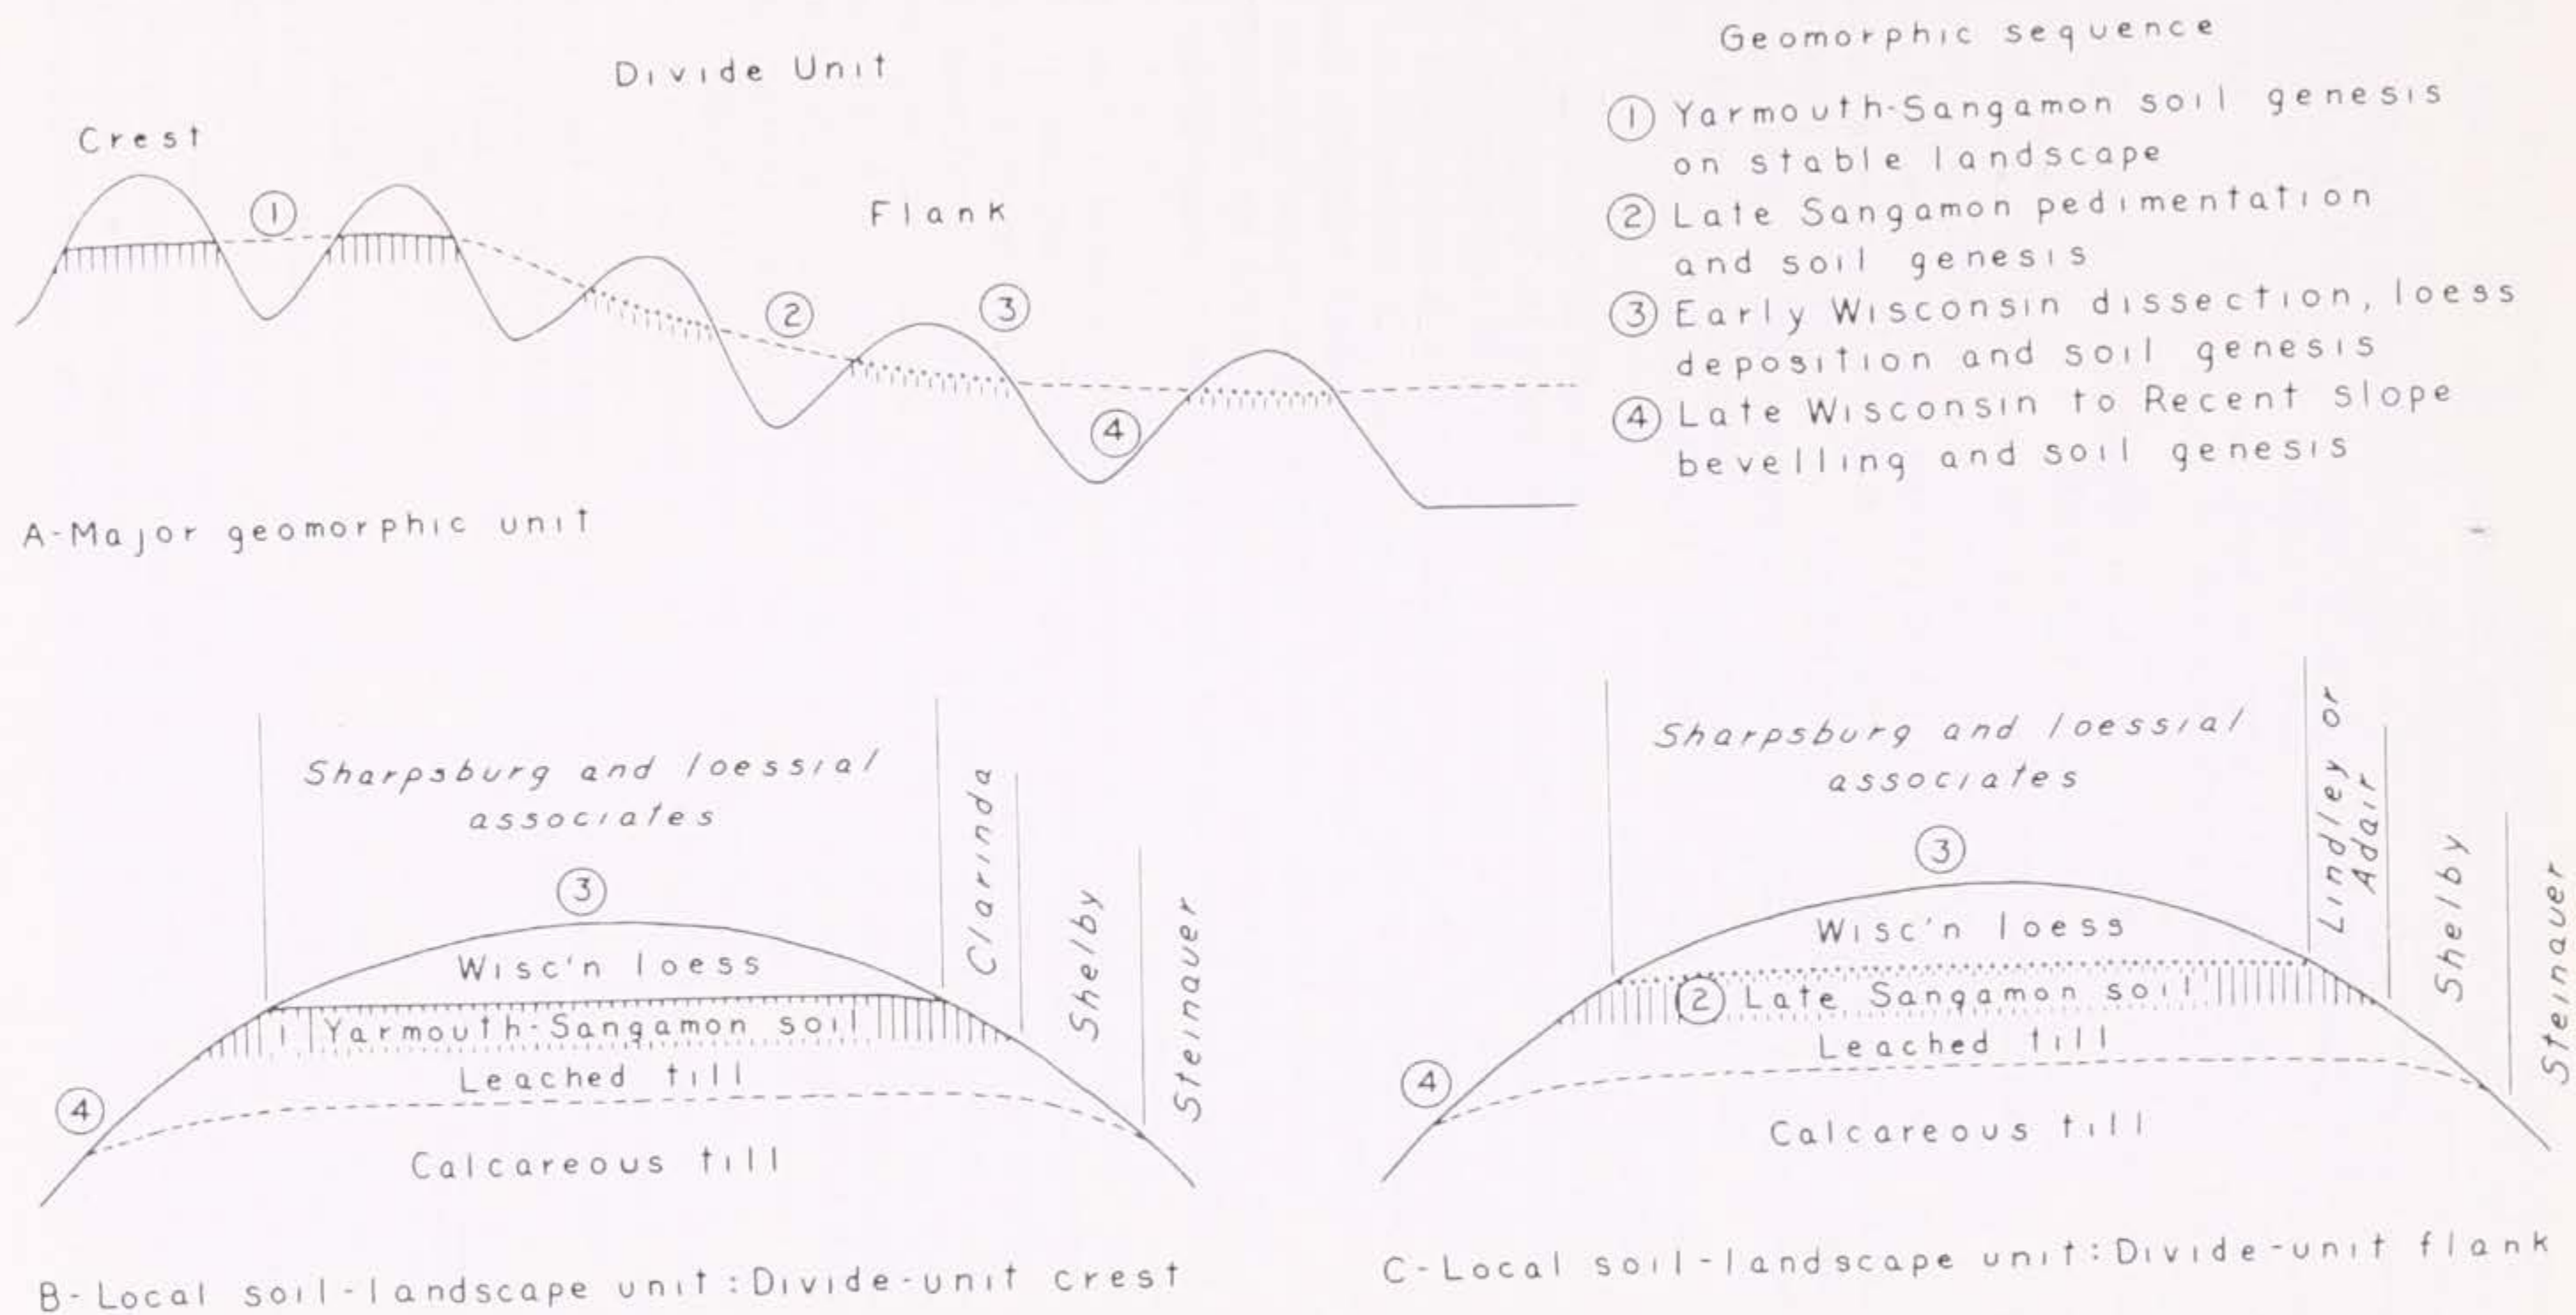 Divide Unit
Crest
①
Flank
②
③
④
A-Major geomorphic unit
Geomorphic sequence
① Yarmouth-Sangamon soil genesis
on stable landscape
② Late Sangamon pedimentation
and soil genesis
③ Early Wisconsin dissection, loess
deposition and soil genesis
④ Late Wisconsin to Recent slope
bevelling and soil genesis
Sharpsburg and loessial
associates
Clarinda
Shelby
Steinauer
③
Wisc'n loess
Yarmouth-Sangamon soil
Leached till
④
Calcareous till
B-Local soil-landscape unit: Divide-unit crest
Sharpsburg and loessial
associates
Lindley or
Adair
Shelby
Steinauer
③
Wisc'n loess
② Late Sangamon soil
Leached till
④
Calcareous till
C-Local soil-landscape unit: Divide-unit flank